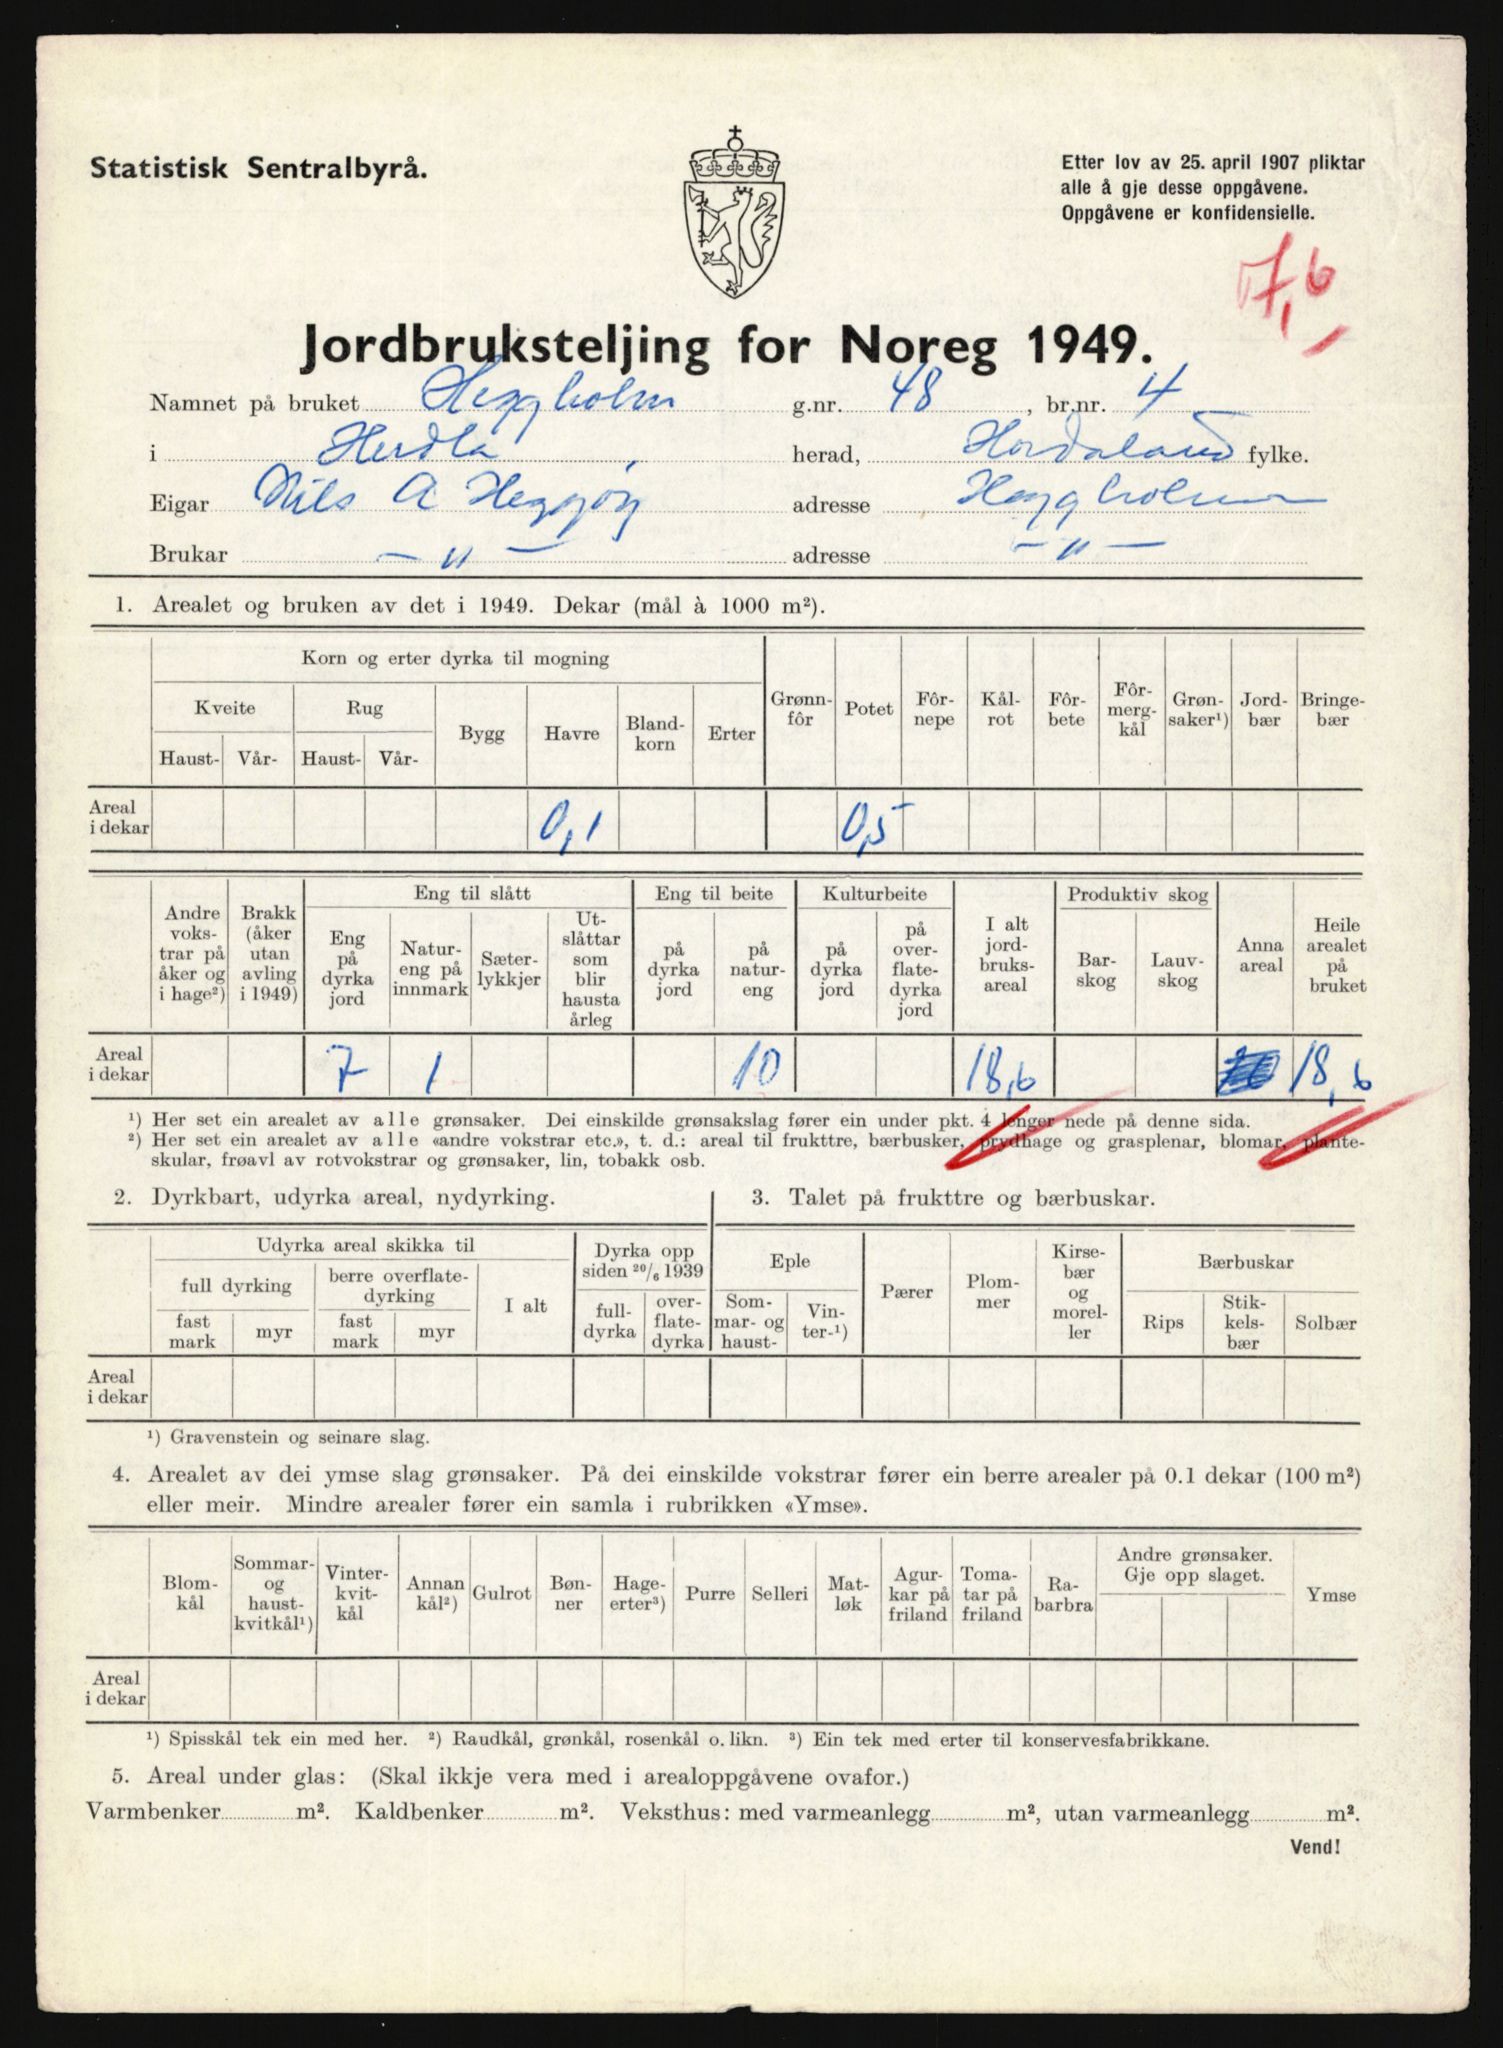 Statistisk Sentralbyrå.
Etter lov av 25. april 1907 pliktar
alle å gje desse oppgåvene.
Oppgåvene er konfidensielle.
7,6
Jordbruksteljing for Noreg 1949.
Namnet på bruket Heggholm g.nr. 48, br.nr. 4
i Herdla herad, Hordaland fylke.
Eigar Nils A Heggøy adresse Heggholmen
Brukar — " — adresse — " —
1. Arealet og bruken av det i 1949. Dekar (mål à 1000 m²).
Korn og erter dyrka til mogning
Kveite Rug Bygg Havre Bland-korn Erter Grønn-fôr Potet Fôr-nepe Kål-rot Fôr-bete Fôr-merg-kål Grøn-saker¹) Jord-bær Bringe-bær
Haust- Vår- Haust- Vår-
Areal i dekar 0,1 0,5
Andre voks-trar på åker og i hage²) Brakk (åker utan avling i 1949) Eng til slått Eng til beite Kulturbeite I alt jord-bruks-areal Produktiv skog Anna areal Heile arealet på bruket
Eng på dyrka jord Natur-eng på innmark Sæter-lykkjer Ut-slåttar som blir hausta årleg på dyrka jord på natur-eng på dyrka jord på over-flate-dyrka jord Bar-skog Lauv-skog
Areal i dekar 7 1 10 18,6 18,6
¹) Her set ein arealet av alle grønsaker. Dei einskilde grønsakslag fører ein under pkt. 4 lenger nede på denne sida.
²) Her set ein arealet av alle «andre vokstrar etc.», t. d.: areal til frukttre, bærbusker, prydhage og grasplenar, blomar, plante-
skular, frøavl av rotvokstrar og grønsaker, lin, tobakk osb.
2. Dyrkbart, udyrka areal, nydyrking.
Udyrka areal skikka til Dyrka opp siden 20/6 1939
full dyrking berre overflate-dyrking I alt full-dyrka over-flate-dyrka
fast mark myr fast mark myr
Areal i dekar
3. Talet på frukttre og bærbuskar.
Eple Pærer Plom-mer Kirse-bær og morel-ler Bærbuskar
Som-mar- og haust- Vin-ter-¹) Rips Stik-kels-bær Solbær
¹) Gravenstein og seinare slag.
4. Arealet av dei ymse slag grønsaker. På dei einskilde vokstrar fører ein berre arealer på 0.1 dekar (100 m²)
eller meir. Mindre arealer fører ein samla i rubrikken «Ymse».
Blom-kål Sommar- og haust-kvitkål¹) Vinter-kvit-kål Annan kål²) Gulrot Bøn-ner Hage-erter³) Purre Selleri Mat-løk Agur-kar på friland Toma-tar på friland Ra-barbra Andre grønsaker. Gje opp slaget. Ymse
Areal i dekar
¹) Spisskål tek ein med her. ²) Raudkål, grønkål, rosenkål o. likn. ³) Ein tek med erter til konservesfabrikkane.
5. Areal under glas: (Skal ikkje vera med i arealoppgåvene ovafor.)
Varmbenker m². Kaldbenker m². Veksthus: med varmeanlegg m², utan varmeanlegg m².
Vend!